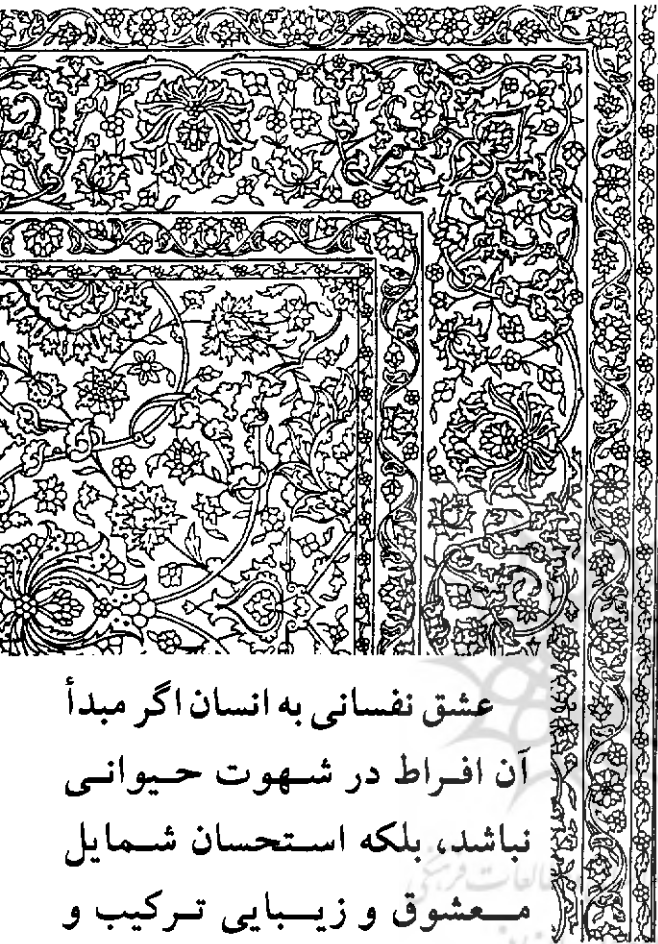 عشق نفسانی به انسان اگر مبدأ
آن افراط در شهوت حیوانی
نباشد، بلکه استحسان شمایل
معشوق و زیبایی ترکیب و